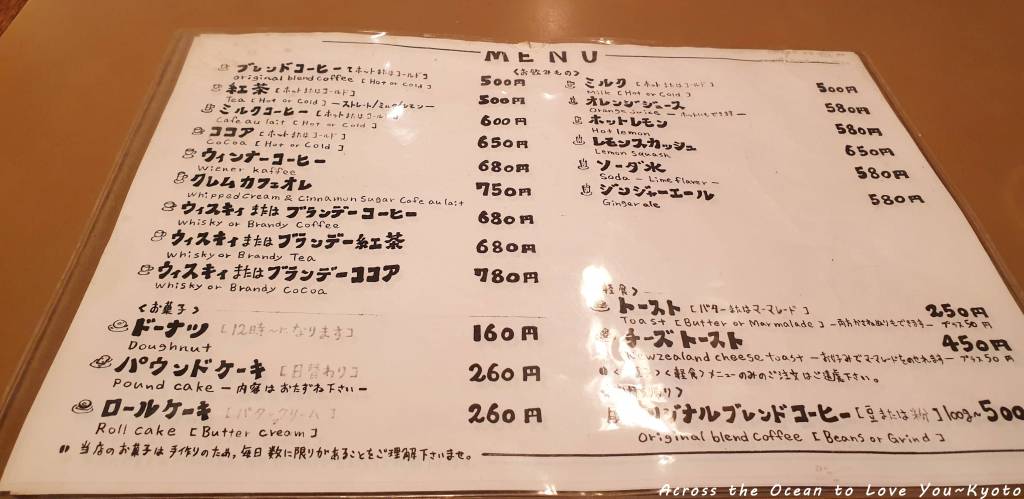 MENU
<お飲みもの>
ブレンドコーヒー [ホットまたはコールド] 500円
original blend coffee [Hot or Cold]
紅茶 500円
Tea [Hot or Cold] ーストレート/ミルク/レモンー
ミルクコーヒー [ホットまたはコールド] 600円
Cafe au lait [Hot or Cold]
ココア [ホットまたはコールド] 650円
Cocoa [Hot or Cold]
ウィンナーコーヒー 680円
Wiener kaffee
クレムカフェオレ 750円
Whipped cream & Cinnamon Sugar Cafe au lait
ウィスキィまたはブランデーコーヒー 680円
Whisky or Brandy Coffee
ウィスキィまたはブランデー紅茶 680円
whisky or Brandy Tea
ウィスキィまたはブランデーココア 780円
whisky or Brandy Cocoa
ミルク [ホットまたはコールド] 500円
Milk [Hot or Cold]
オレンジジュース 580円
Orange Juice ーホットもできますー
ホットレモン 580円
Hot lemon
レモンスカッシュ 650円
Lemon Squash
ソーダ水 580円
Soda - Lime flaver -
ジンジャーエール 580円
Ginger ale
<お菓子>
ドーナツ [12時〜になります] 160円
Doughnut
パウンドケーキ [日替わり] 260円
Pound cake ー内容はおたずね下さいー
ロールケーキ [バタークリーム] 260円
Roll cake [Butter cream]
当店のお菓子は手作りのため,毎日数に限りがあることをご理解下さいませ。
軽食>
トースト [バターまたはマーマレード] 250円
Toast [Butter or Marmalade] ー両方がさね取りもできますー プラス50円
チーズトースト 450円
Newzealand cheese toast ーお好みでマーマレードをのせれますー プラス50円
<軽食>メニューのみのご注文はご遠慮下さい。
オリジナルブレンドコーヒー [豆または粉] 100g〜500
Original blend Coffee [Beans or Grind]
Across the Ocean to Love You~Kyoto